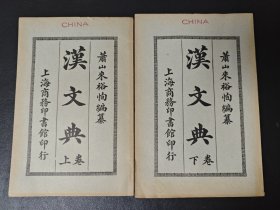 CHINA
蕭山來裕恂編纂
漢文典
卷上
上海商務印書館印行
CHINA
蕭山來裕恂編纂
漢文典
卷下
上海商務印書館印行